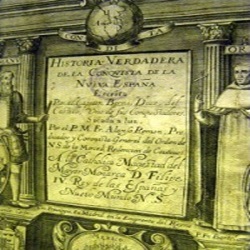 HISTORIA VERDADERA
DE LA CONQVISTA DE LA
NVEVA ESPAÑA
Escrita
Por el Capitan Bernal Diaz, del
Castillo, Vno de sus Conquistadores.
Sacada a luz,
Por el P. M. Fr. Alonso Remon, Pre
dicador y Coronista General del Orden de
N. S. de la Merced, Redencion de Cautivos.
A la Catholica Magestad del
Mayor Monarca D. Felipe
IV. Rey de las Españas y
Nuevo Mundo. N. S.